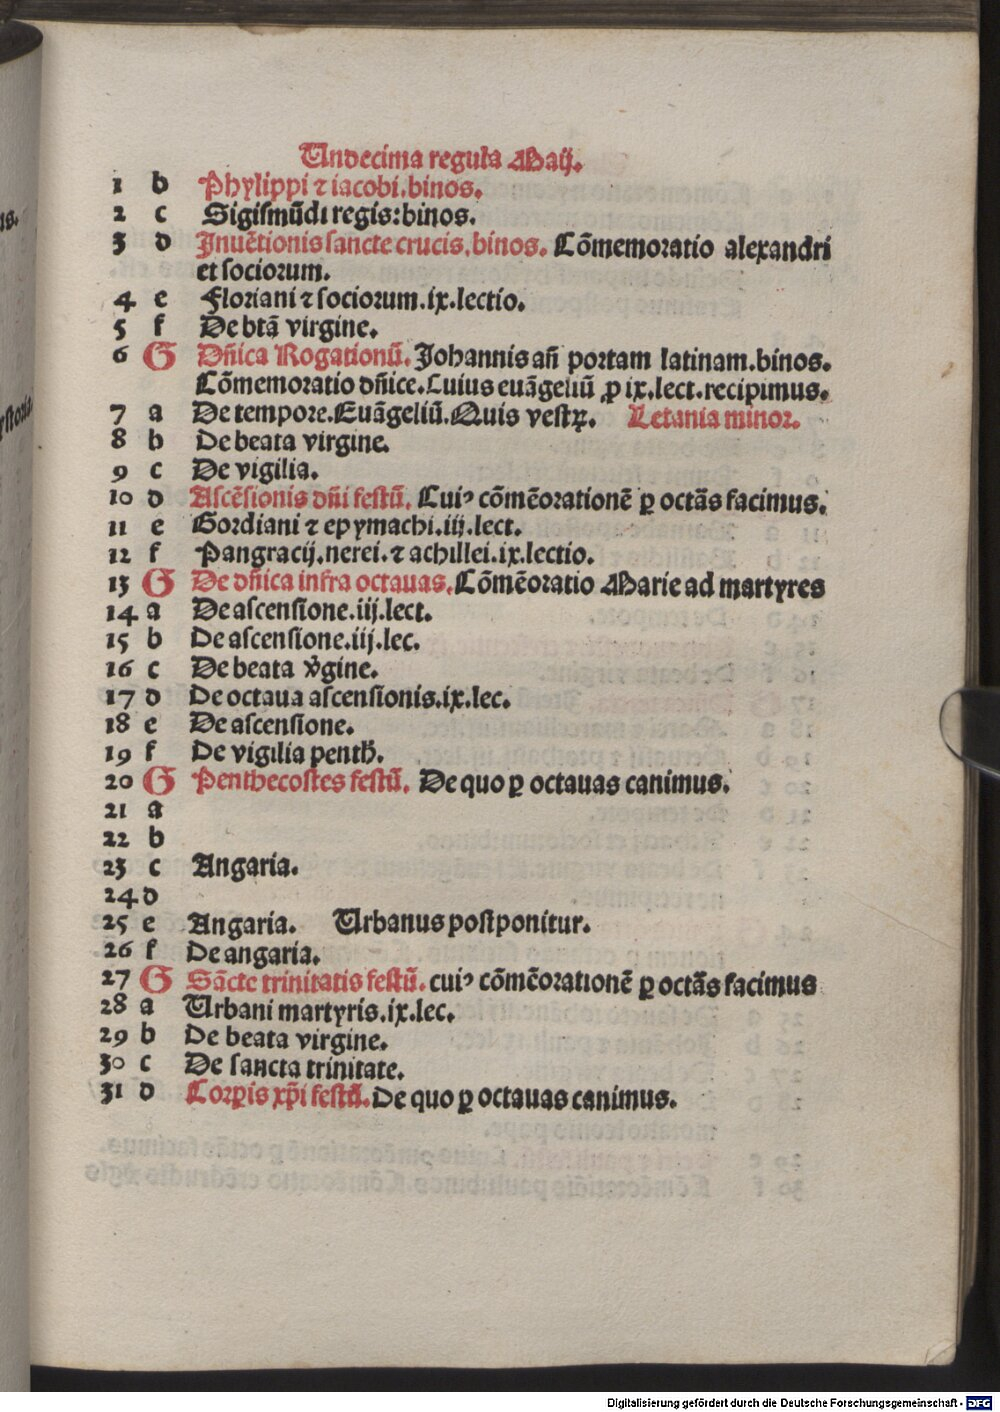 Undecima regula Maij.
1 b Phylippi ⁊ iacobi. binos.
2 c Sigiſmūdi regis: binos.
3 d Inuētionis ſancte crucis. binos. Cōmemoratio alexandri
et ſociorum.
4 e Floriani ⁊ ſociorum. ix. lectio.
5 f De btā virgine.
6 G Dn̄ica Rogationū. Johannis an̄ portam latinam. binos.
Cōmemoratio dn̄ice. Cuius euāgeliū ꝓ ix. lect. recipimus.
7 a De tempore. Euāgeliū. Quis veſtꝝ. Letania minor.
8 b De beata virgine.
9 c De vigilia.
10 d Aſcēſionis dn̄i feſtū. Cuiꝰ cōmēorationē ꝑ octās facimus.
11 e Gordiani ⁊ epymachi. iij. lect.
12 f Pangracij. nerei. ⁊ achillei. ix. lectio.
13 G De dn̄ica infra octauas. Cōmēoratio Marie ad martyres
14 a De aſcenſione. iij. lect.
15 b De aſcenſione. iij. lec.
16 c De beata v̄gine.
17 d De octaua aſcenſionis. ix. lec.
18 e De aſcenſione.
19 f De vigilia penth̄.
20 G Penthecoſtes feſtū. De quo ꝑ octauas canimus.
21 a
22 b
23 c Angaria.
24 d
25 e Angaria. Urbanus poſtponitur.
26 f De angaria.
27 G Sācte trinitatis feſtū. cuiꝰ cōmēorationē ꝑ octās facimus
28 a Urbani martyris. ix. lec.
29 b De beata virgine.
30 c De ſancta trinitate.
31 d Corꝑis xp̄i feſtū. De quo ꝑ octauas canimus.
Digitalisierung gefördert durch die Deutsche Forschungsgemeinschaft - DFG